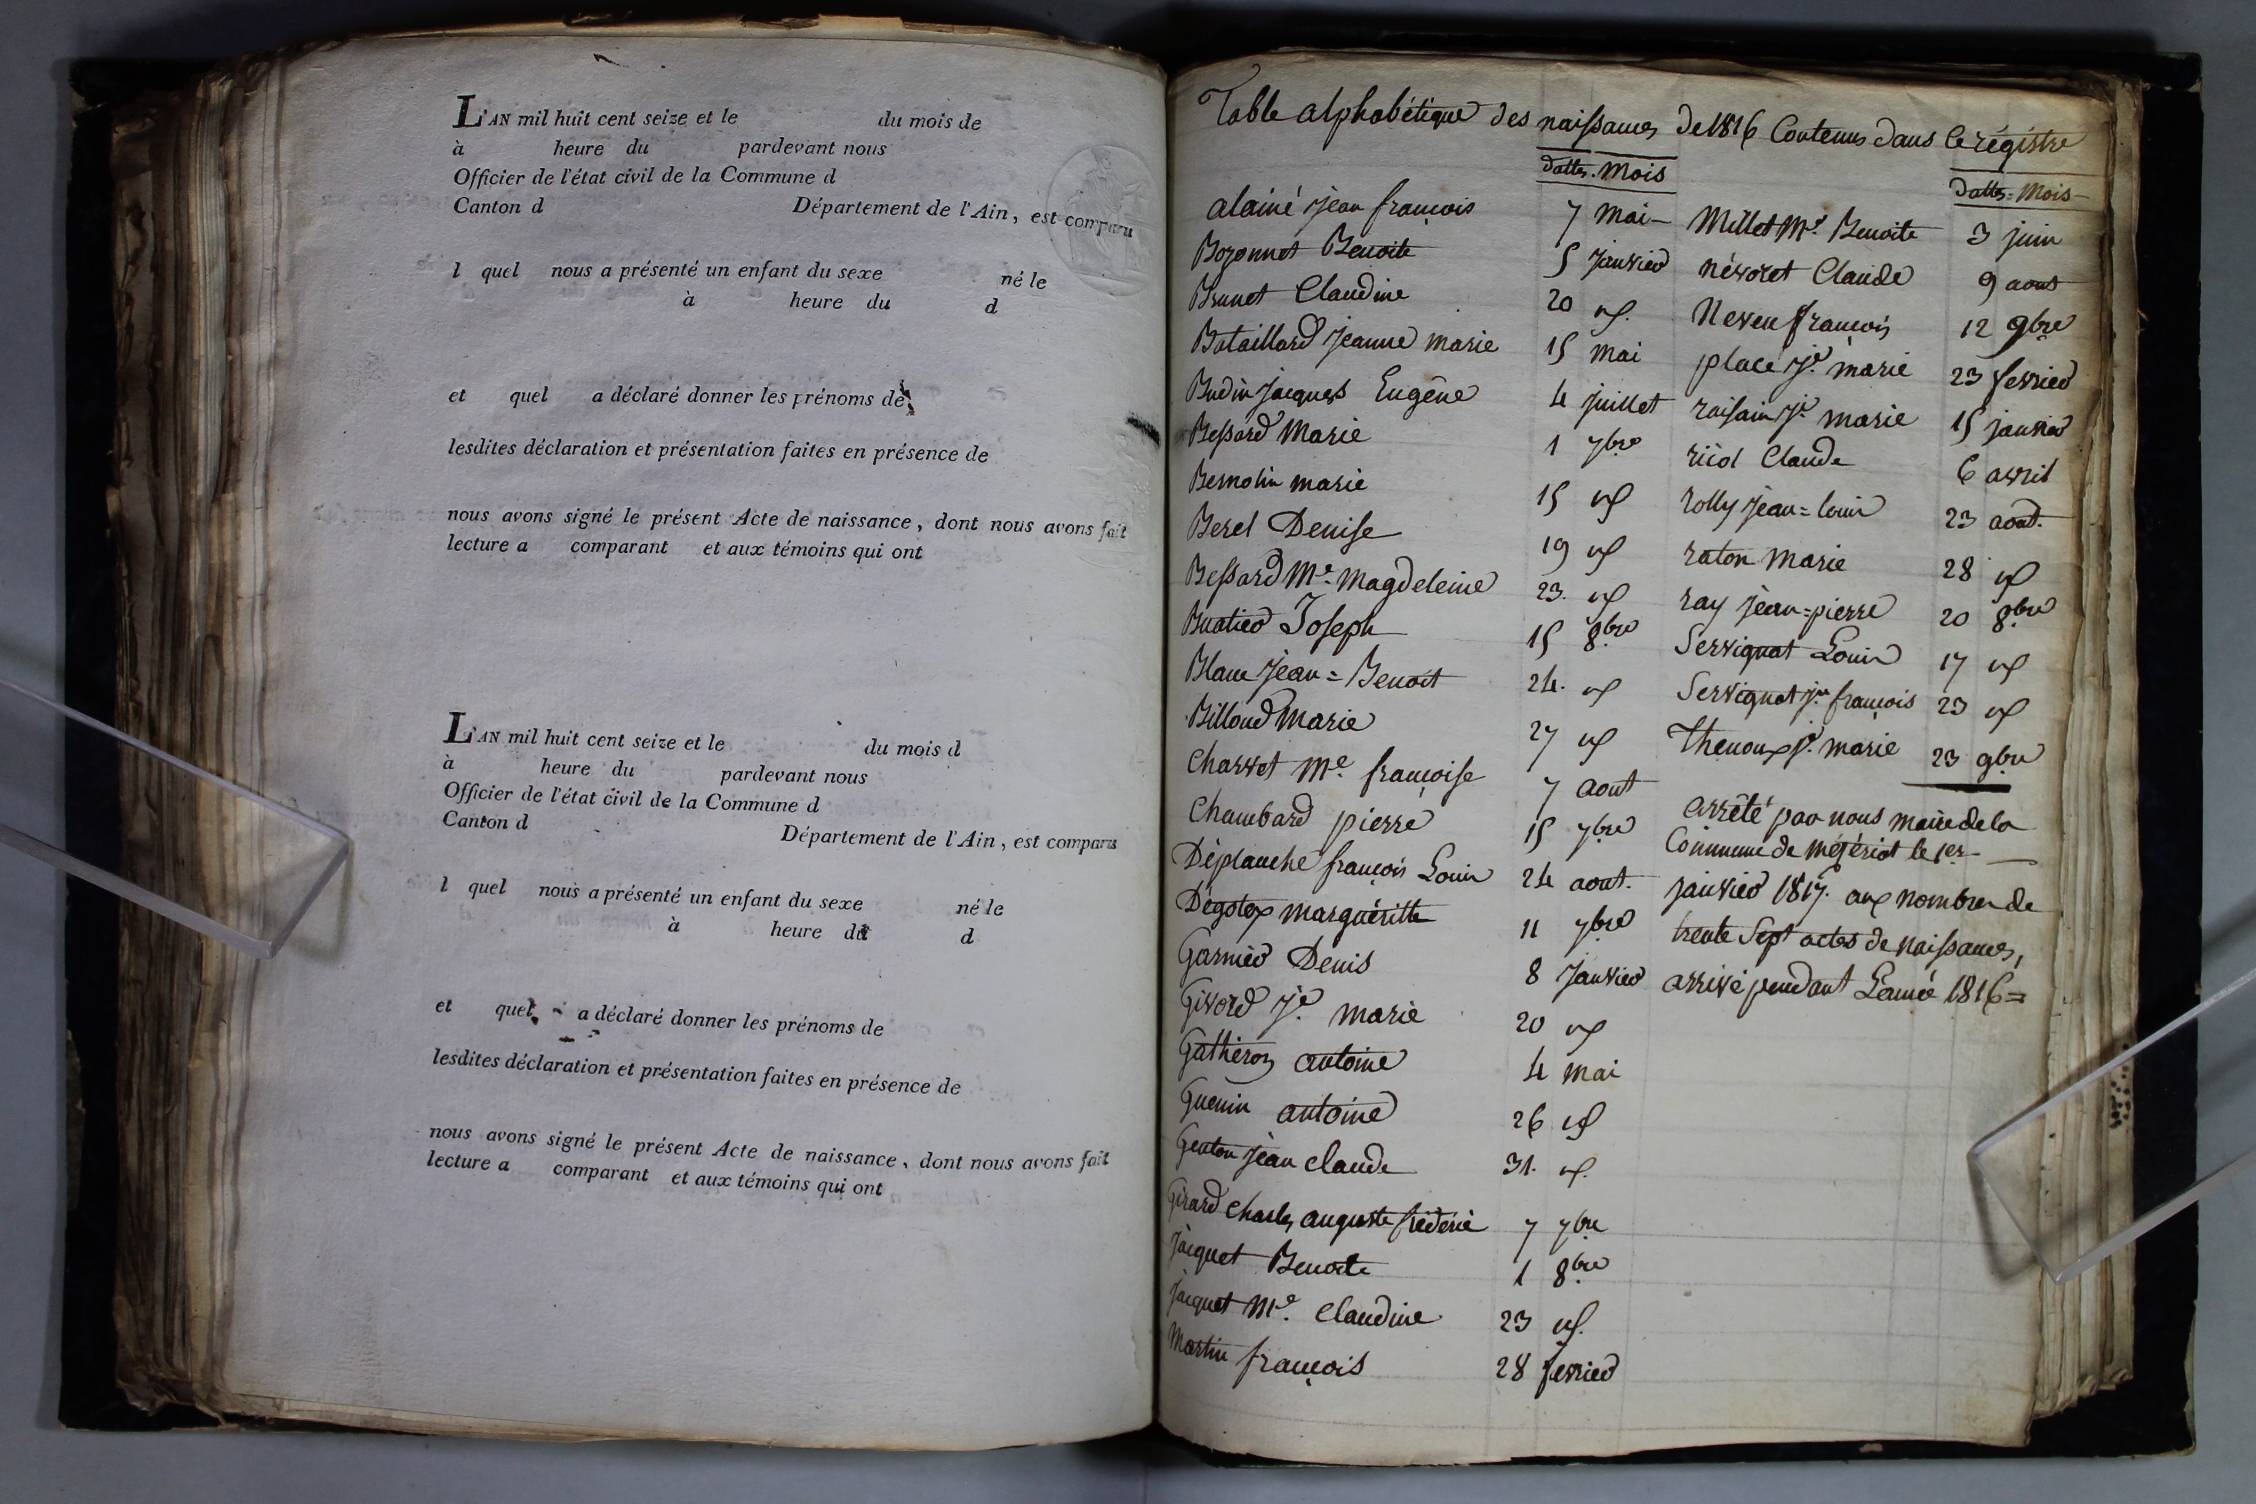 L'AN mil huit cent seize et le du mois de
à heure du pardevant nous
Officier de l'état civil de la Commune d
Canton d Département de l'Ain, est comparu
l quel nous a présenté un enfant du sexe né le
à heure du d
et quel a déclaré donner les prénoms de
lesdites déclaration et présentation faites en présence de
nous avons signé le présent Acte de naissance, dont nous avons fait
lecture a comparant et aux témoins qui ont
L'AN mil huit cent seize et le du mois d
à heure du pardevant nous
Officier de l'état civil de la Commune d
Canton d Département de l'Ain, est comparu
l quel nous a présenté un enfant du sexe né le
à heure du d
et quel a déclaré donner les prénoms de
lesdites déclaration et présentation faites en présence de
nous avons signé le présent Acte de naissance, dont nous avons fait
lecture a comparant et aux témoins qui ont
Table alphabétique des naissances de 1816 Contenus dans le régistre
dattes. Mois
alainé jean françois 7 mai
Bozonnet Benoite 5 janvier
Brunet Claudine 20 id.
Bataillard jeanne marie 15 mai
Budin jacques Eugêne 4 juillet
Bessard Marie 1 7bre
Bernolin marie 15 id
Berel Denise 19 id
Bessard Me. Magdeleine 23. id
Buatier Joseph 15 8bre
Blanc jean=Benoit 24. id
Billoud Marie 27 id
Charvet Me. françoise 7 aout
Chambard pierre 15 7bre
Déplanche françois Louis 24 aout.
Dégolex marguéritte 11 7bre
Garnier Denis 8 Janvier
Givord Je. marie 20 id
Gathéron antoine 4 mai
Guenin antoine 26 id
Genton jean claude 31. id.
Girard Charles auguste frédéric 7 7bre
jacquet Benoite 1 8bre
jacquet Me. Claudine 23 id.
Martin françois 28 fevrier
Dattes=Mois
Millet Me. Benoite 3 juin
névoret Claude 9 aout
Neveu françois 12 9bre
place Je. marie 23 fevrier
raisain je. marie 15 janvier
riiol Claude 6 avril
rolly jean=louis 23 aout.
raton marie 28 id
ray jean=pierre 20 8bre
Servignat Louis 17 id
Servignat jn. françois 23 id
Thenoux je. marie 23 9bre
arrêté par nous maire de la
Commune de mézériat le 1er
janvier 1817. aux nombre de
trente Sept actes de naissances,
arrivé pendant L'année 1816=